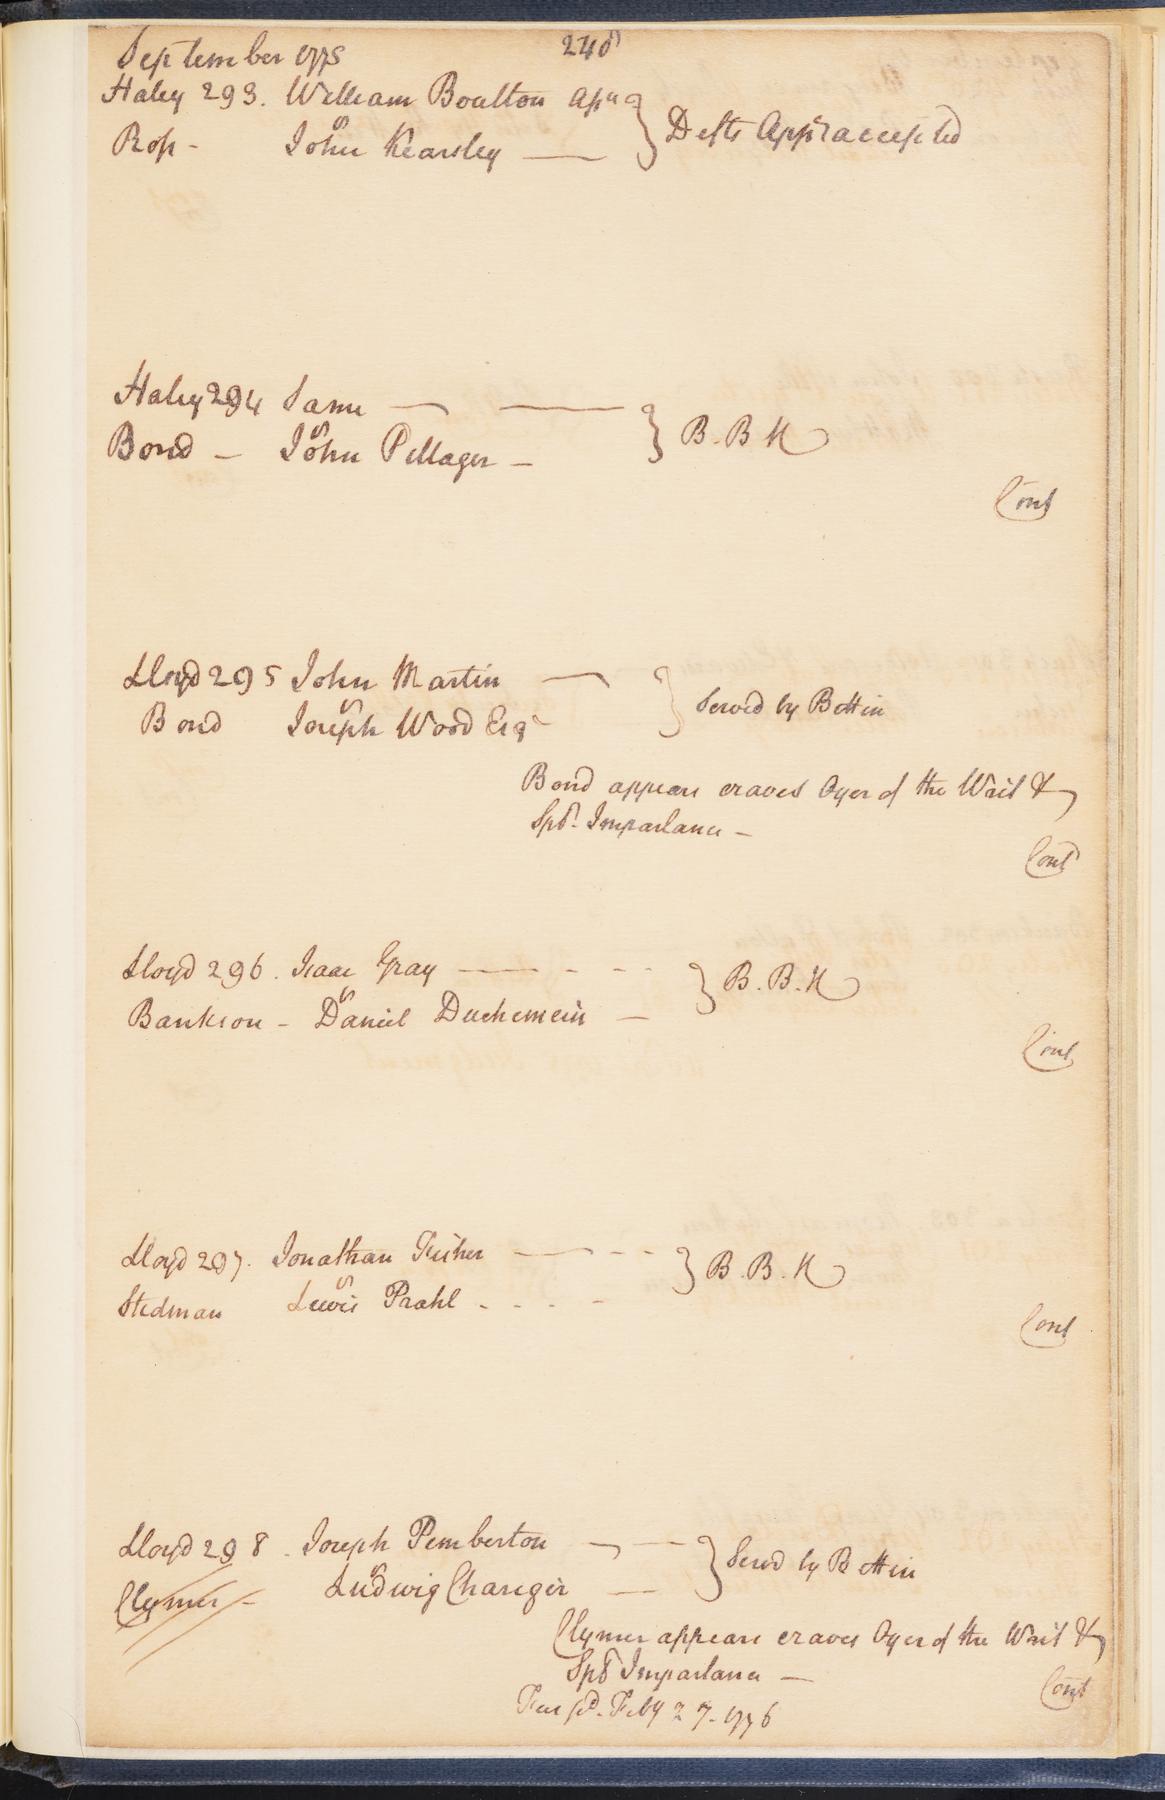 September 1775
240
Haley 293. William Boulton
vs
Ross - John Kearsley — } Defts App: accepted
Haley 294 Same — —
vs } B. B. H
Bond — John Pillager —
Cont
Lloyd 295 John Martin —
vs } Served by Bettin
Bond Joseph Wood Esqr
Bond appears craves Oyer of the Writ &
Spl. Imparlance —
Cont
Lloyd 296. Isaac Gray — - - -
vs } B. B. H
Bankson - Daniel Duchemein —
Cont
Lloyd 297. Jonathan Fisher — - -
vs } B. B. H
Stedman Lewis Prahl - - - -
Cont
Lloyd 298. Joseph Pemberton — —
vs } Served by Bettin
Clymer - Ludwig —
Clymer appears craves Oyer of the Writ &
Spl Imparlance —
Cont
Feb'y 27. 1776